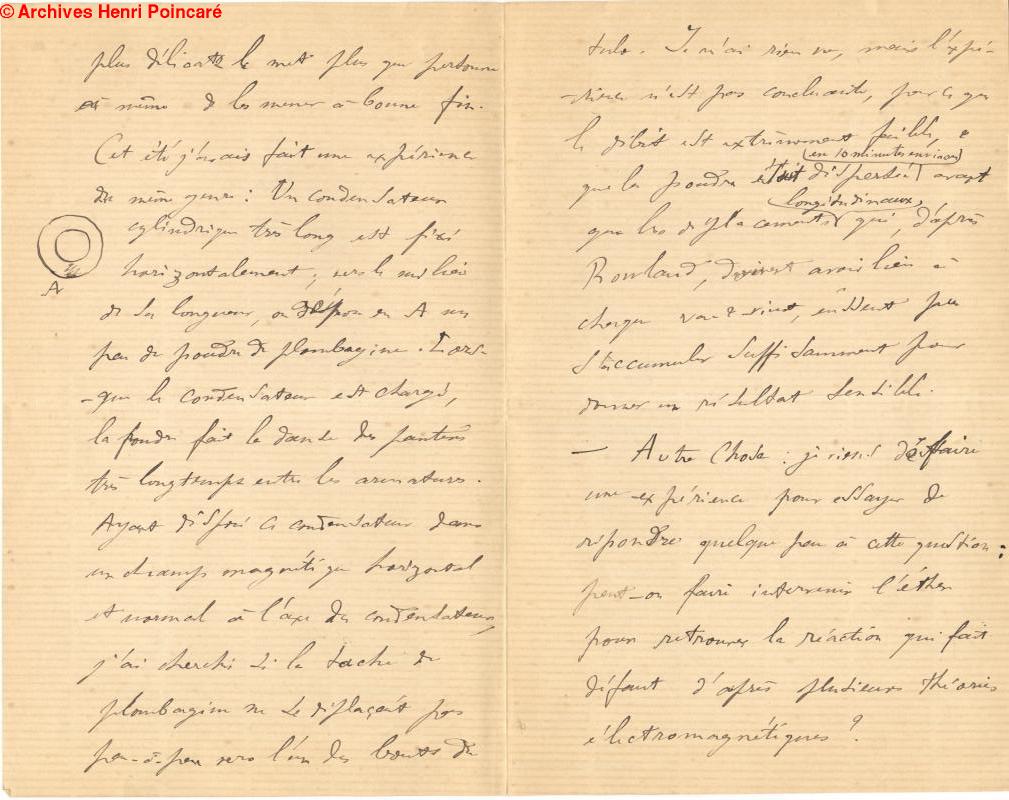 © Archives Henri Poincaré
plus délicats le met plus que personne
à même de les mener à bonne fin.
Cet été j'avais fait une expérience
du même genre : Un condensateur
cylindrique très long est fixé
horizontalement ; vers le milieu
de sa longueur, on dépose en A un
peu de poudre de plombagine. Lors-
-que le condensateur est chargé,
la poudre fait la danse des pantins
très longtemps entre les armatures.
Ayant disposé ce condensateur dans
un champ magnétique horizontal
et normal à l'axe du condensateur,
j'ai cherché si la tache de
plombagine ne se déplaçait pas
peu-à-peu vers l'un des bouts du
A
tube. Je n'ai rien vu, mais l'expé-
-rience n'est pas concluante, parce que
le débit est extrêmement faible, &
(en 10 minutes environ)
que la poudre était dispersée avant
longitudinaux,
que les déplacements qui, d'après
Rowland, devaient avoir lieu à
chaque va & vient, eussent pu
s'accumuler suffisamment pour
donner un résultat sensible.
— Autre Chose : je viens de faire
une expérience pour essayer de
répondre quelque peu à cette question :
peut-on faire intervenir l'éther
pour retrouver la réaction qui fait
défaut d'après plusieurs théories
électromagnétiques ?